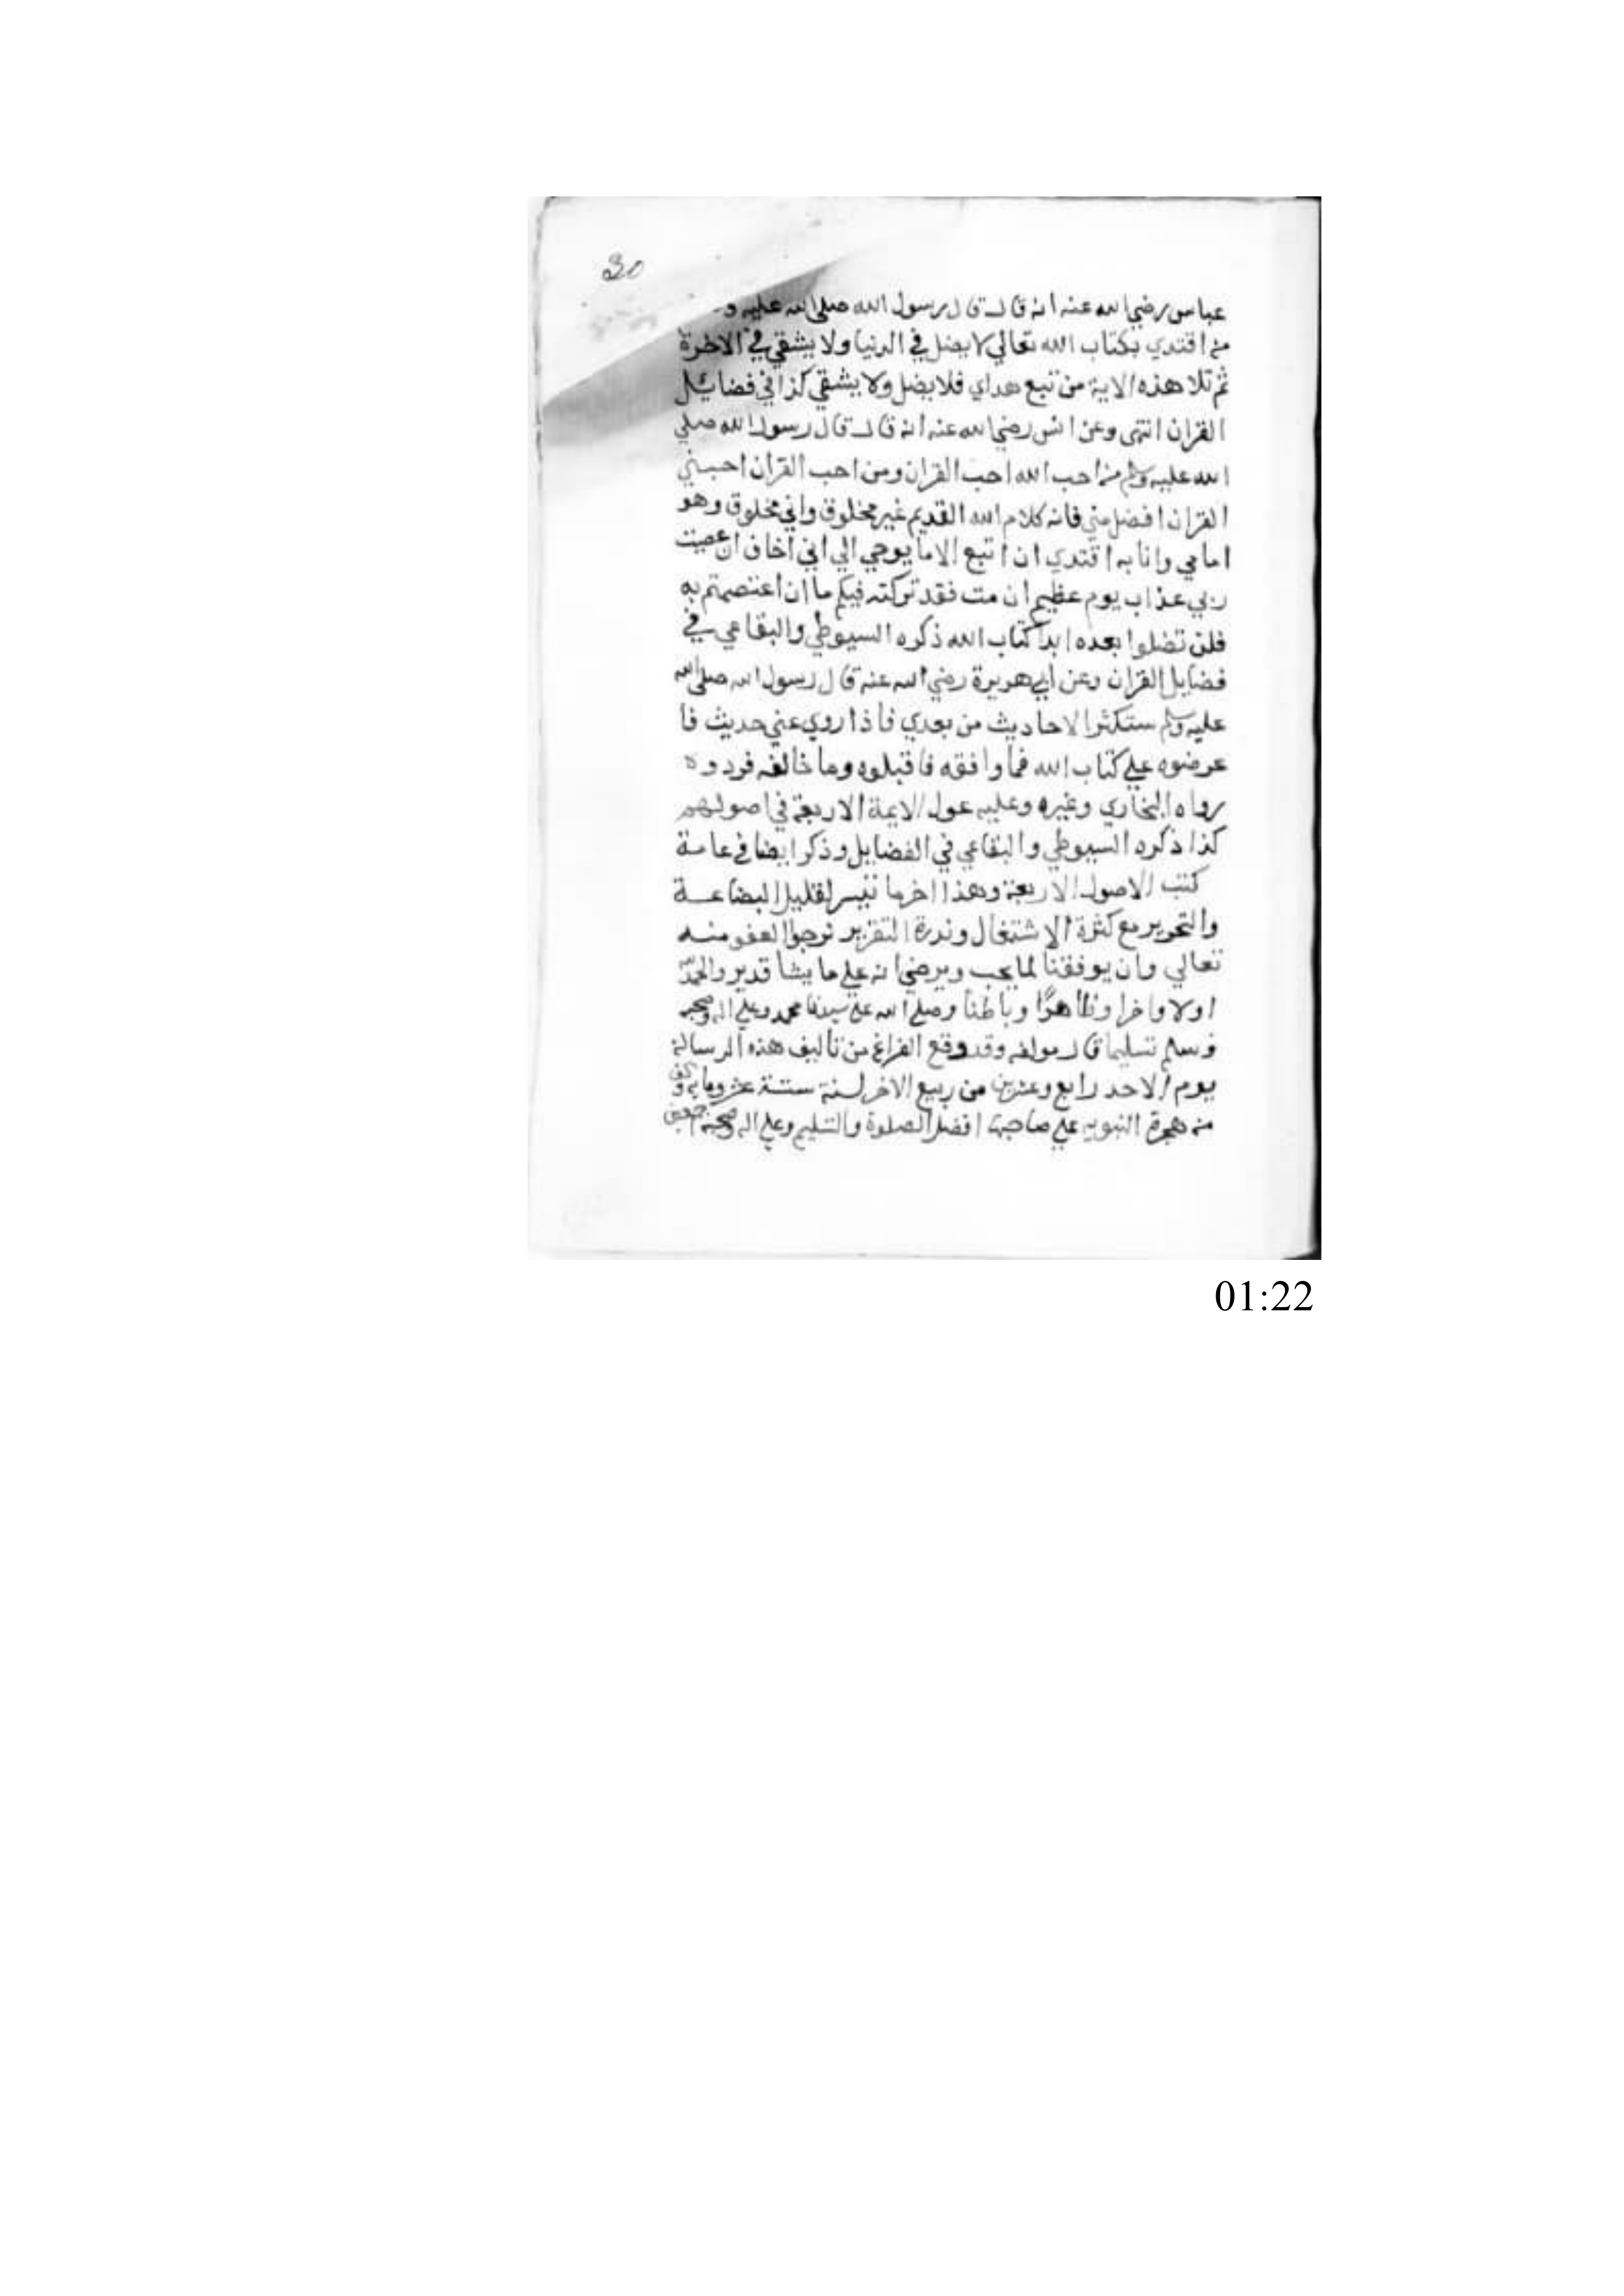 30
عباس رضي الله عنه انه قال قال رسول الله صلي الله عليه و
من اقتدي بكتاب الله تعالي لا يضل في الدنيا ولا يشقي في الاخرة
ثم تلا هذه الاية من تبع هداي فلا يضل ولا يشقي كذا في فضائل
القران انتهى وعن انس رضي الله عنه انه قال قال رسول الله صلي
الله عليه وسلم من احب الله احب القران ومن احب القران احبني
القران افضل مني فانه كلام الله القديم غير مخلوق واني مخلوق وهو
امامي وانا به اقتدي ان اتبع الا ما يوحي الي اني اخاف ان عصيت
ربي عذاب يوم عظيم ان مت فقد تركته فيكم ما ان اعتصمتم به
فلن تضلوا بعده ابدا كتاب الله ذكره السيوطي والبقاعي في
فضايل القران وعن ابي هريرة رضي الله عنه قال رسول الله صلي الله
عليه وسلم ستكثر الاحاديث من بعدي فاذا روي عني حديث فا
عرضوه علي كتاب الله فما وافقه فاقبلوه وما خالفه فردوه
رواه البخاري وغيره وعليه عول الايمة الاربعة في اصولهم
كذا ذكره السيوطي والبقاعي في الفضايل وذكر ايضا في عامة
كتب الاصول الاربعة وهذا اخر ما تيسر لقليل البضاعة
والتحرير مع كثرة الاشتغال وندرة التقرير نرجوا العفو منه
تعالي وان يوفقنا لما يحب ويرضي انه علي ما يشا قدير والحمد لله
اولا واخرا وظاهرًا وباطنا وصلي الله علي سيدنا محمد وعلي اله وصحبه
وسلم تسليما قال مولفه وقد وقع الفراغ من تاليف هذه الرسالة
يوم الاحد رابع وعشرين من ربيع الاخر لسنة ستة عشر وماية والف
من هجرة النبويه علي صاحبها افضل الصلوة والتسليم وعلي اله وصحبه اجمعين
01:22